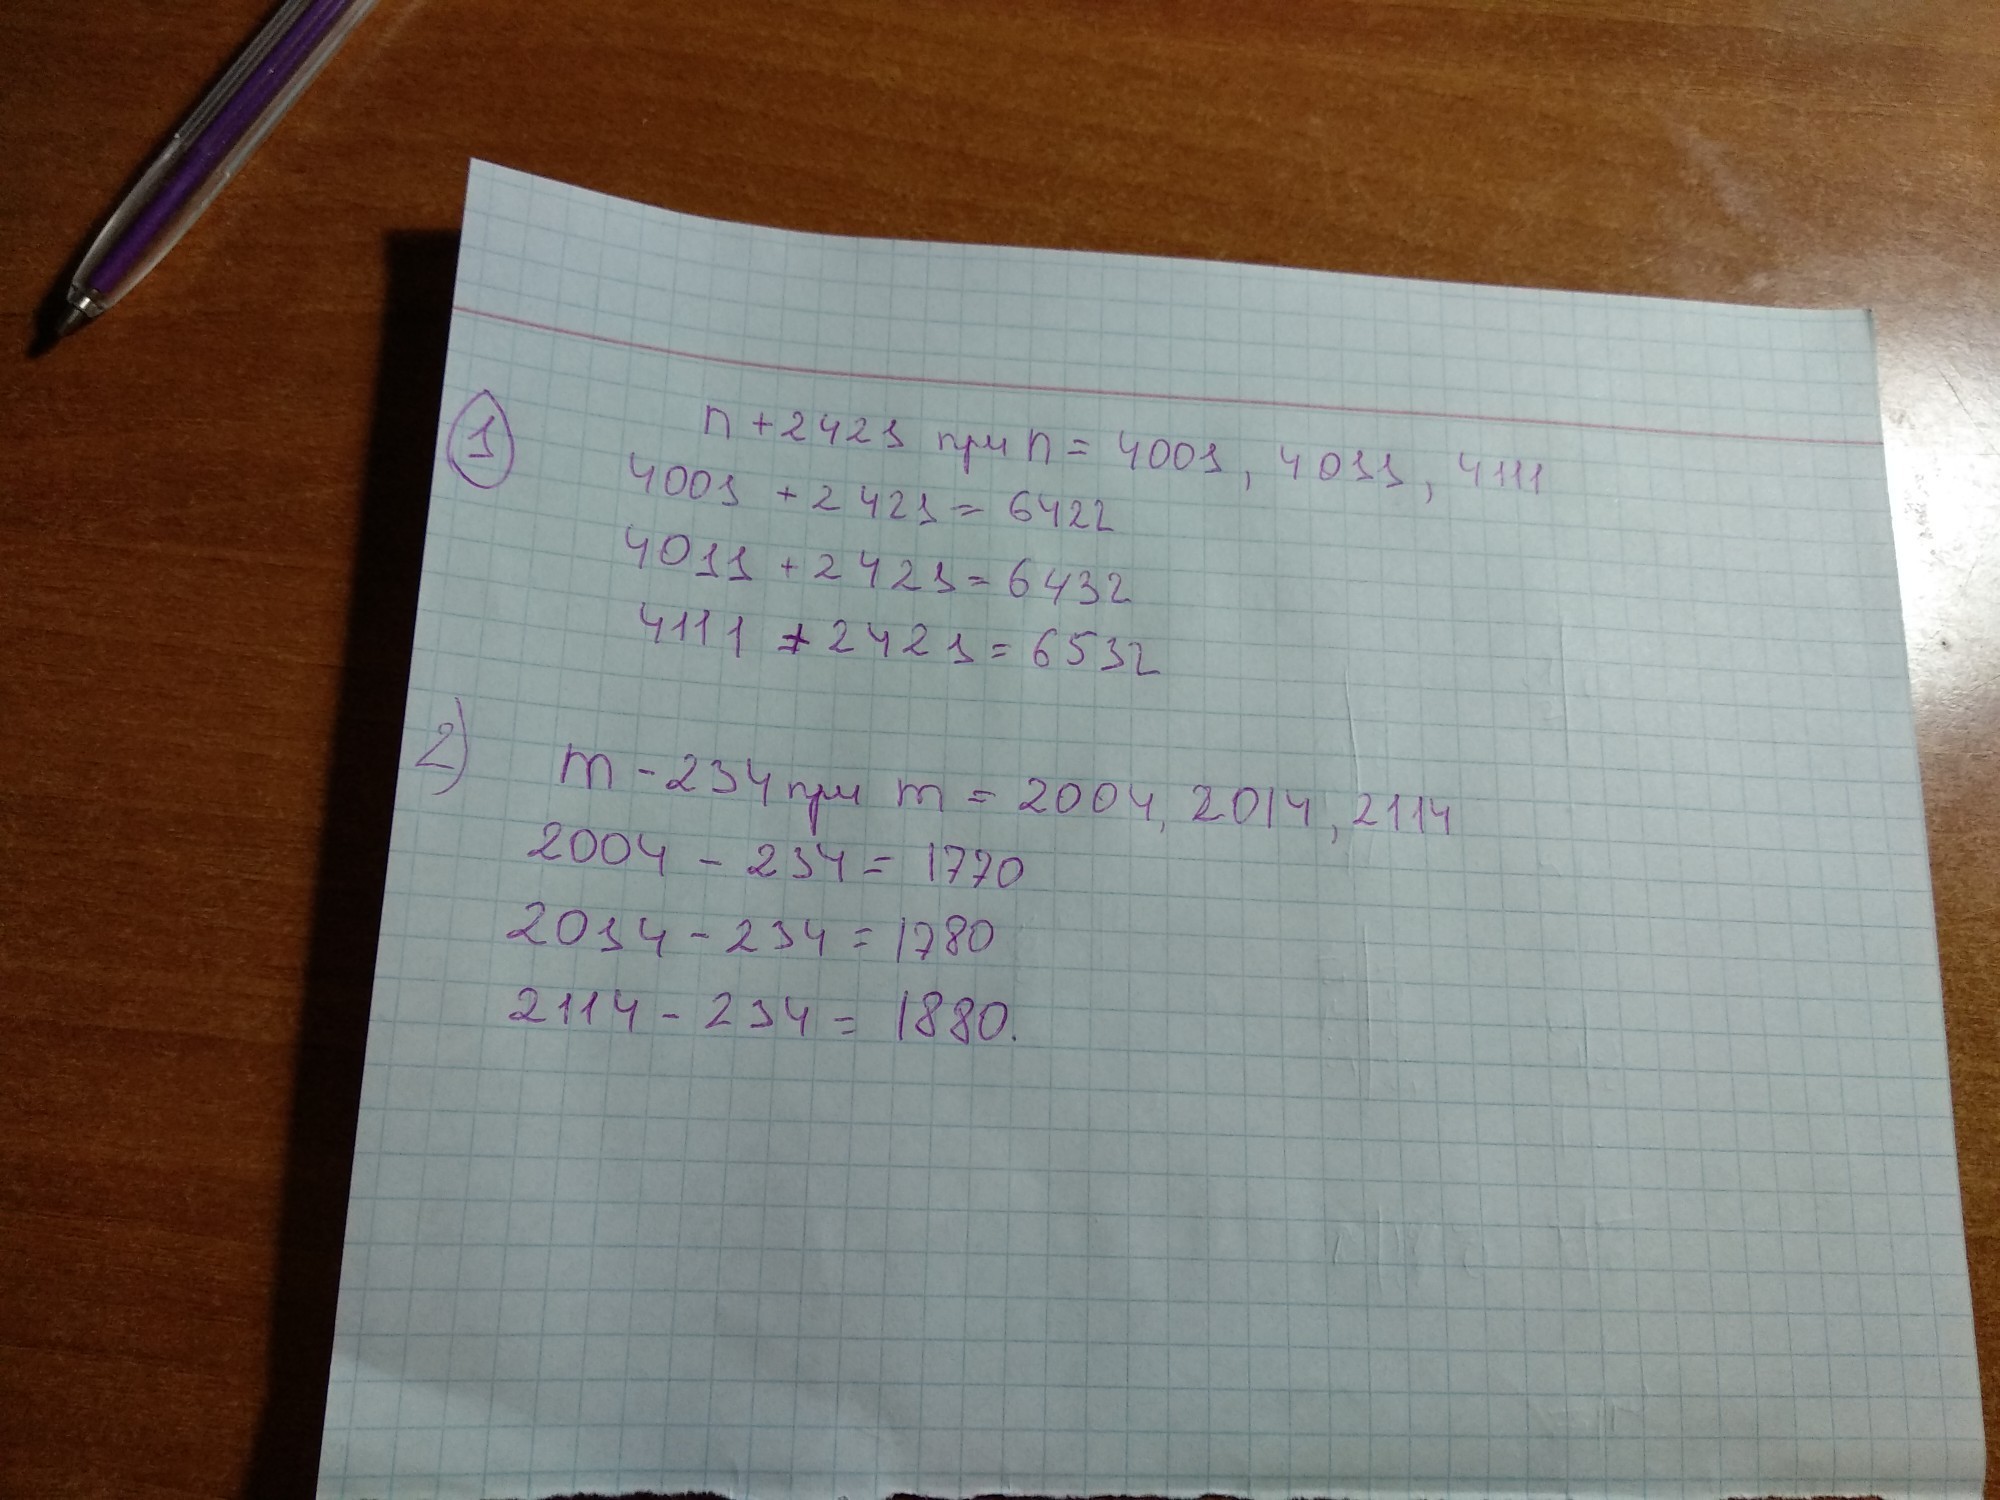 1
n + 2421 при n = 4001, 4011, 4111
4001 + 2421 = 6422
4011 + 2421 = 6432
4111 + 2421 = 6532
2)
m - 234 при m = 2004, 2014, 2114
2004 - 234 = 1770
2014 - 234 = 1780
2114 - 234 = 1880.